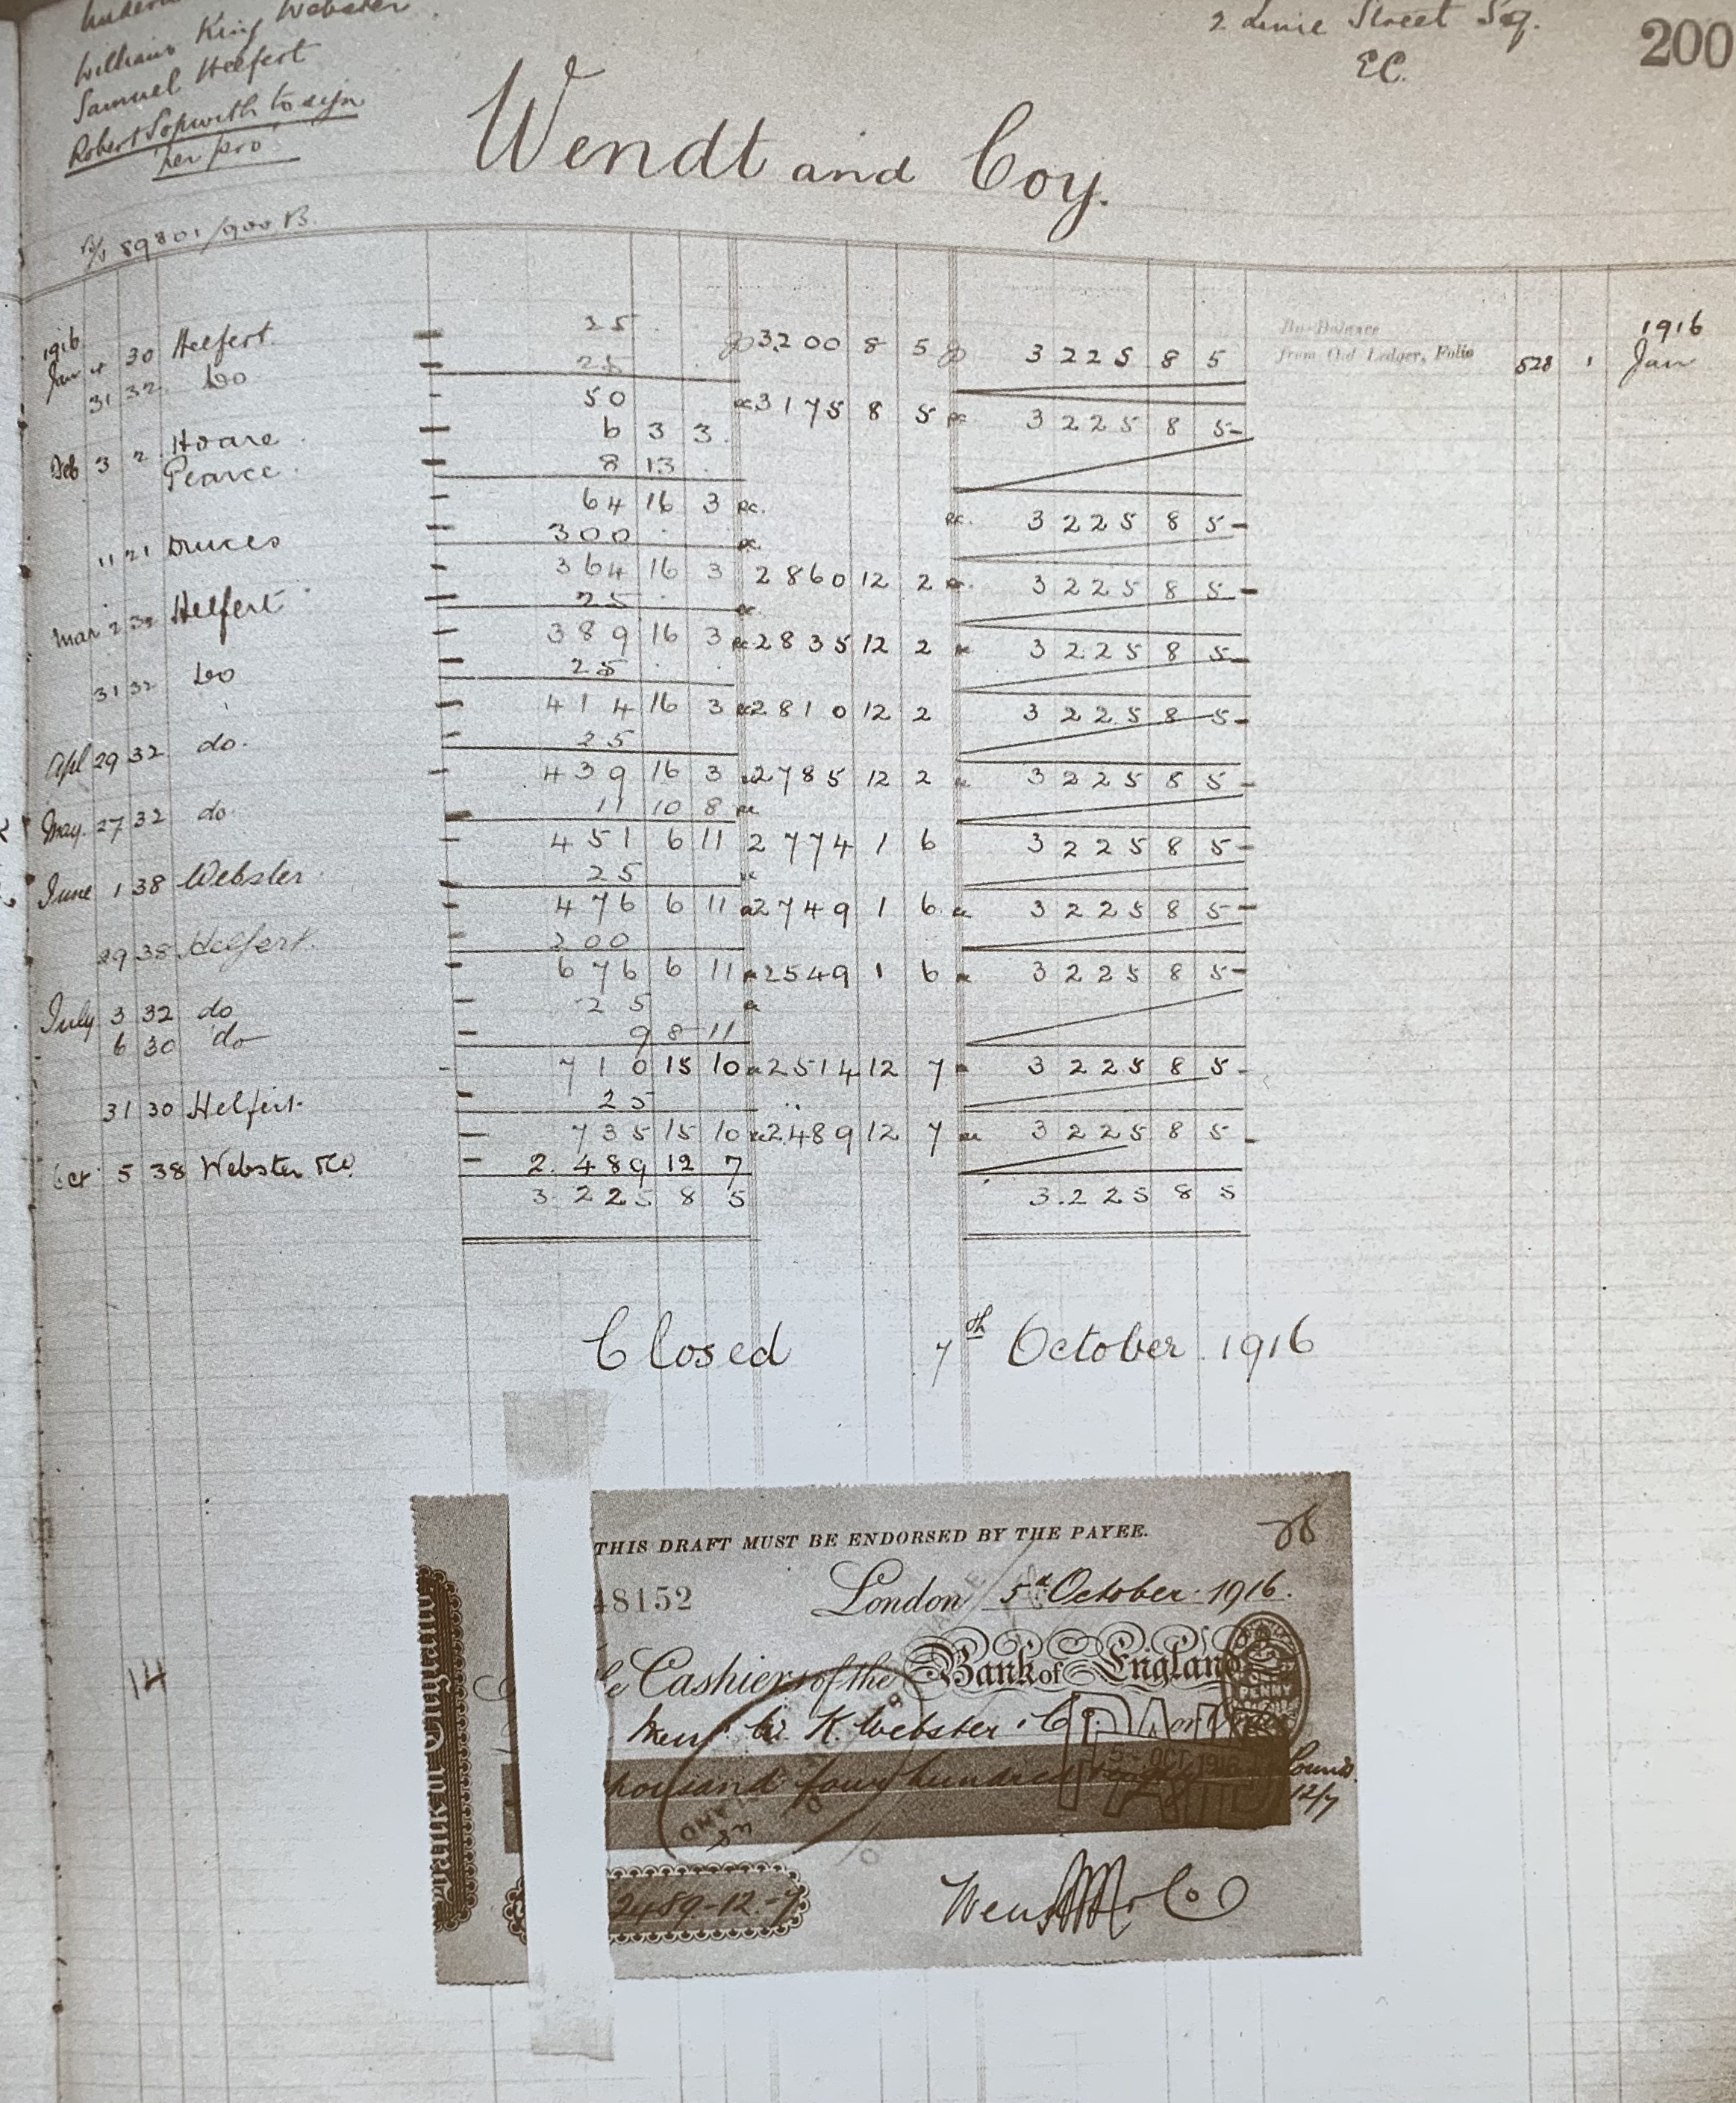 William King Webster
2 Lime Street Sq.
200
Samuel Helfert
E.C.
Robert Sopwith to sign
per pro
Wendt and Coy.
89801/900 B.
1916 25 1916
Jan 4 30 Helfert 3200 8 5 3225 8 5 By Balance from Old Ledger, Folio 528 1 Jan
31 32 Do 25
50 3175 8 5 3225 8 5
Feb 3 2 Hoare 6 3 3
Pearce 8 13
64 16 3 3225 8 5
11 21 Druces 300
364 16 3 2860 12 2 3225 8 5
Mar 2 32 Helfert 25
389 16 3 2835 12 2 3225 8 5
31 32 Do 25
414 16 3 2810 12 2 3225 8 5
Apl 29 32 do. 25
439 16 3 2785 12 2 3225 8 5
May 27 32 do 11 10 8
451 6 11 2774 1 6 3225 8 5
June 1 38 Webster 25
476 6 11 2749 1 6 3225 8 5
29 38 Helfert 200
676 6 11 2549 1 6 3225 8 5
July 3 32 do 25
6 30 do 9 8 11
710 15 10 2514 12 7 3225 8 5
31 30 Helfert 25
735 15 10 2489 12 7 3225 8 5
Oct 5 38 Webster &Co 2.489 12 7
3 225 8 5 3.225 8 5
Closed 7th October 1916
THIS DRAFT MUST BE ENDORSED BY THE PAYEE.
48152 London 5th October 1916.
Cashiers of the Bank of England
PENNY
Messrs W. K. Webster & Co. or
PAID
5-OCT.1916
thousand four hundred Pounds
12/7
Bank of England
2489-12-7
Wendt & Co
14